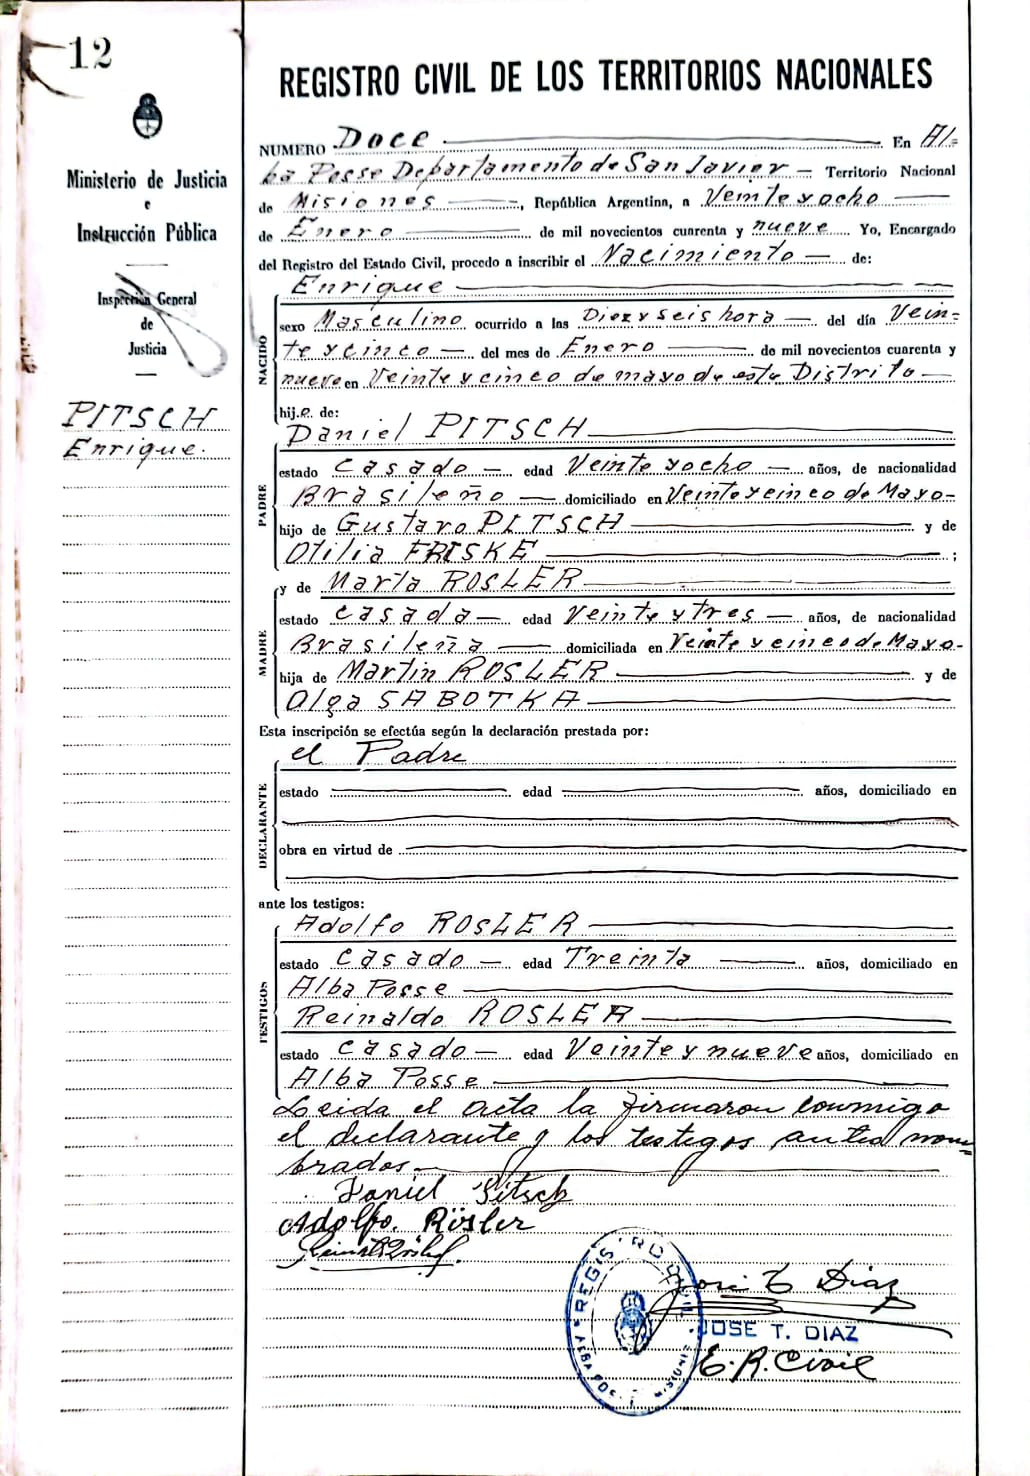 12
Ministerio de Justicia
e
Instrucción Pública
Inspección General
de
Justicia
PITSCH
Enrique.
REGISTRO CIVIL DE LOS TERRITORIOS NACIONALES
NUMERO Doce En Al=
ba Posse Departamento de San Javier — Territorio Nacional
de Misiones —, República Argentina, a Veinte y ocho —
de Enero — de mil novecientos cuarenta y nueve Yo, Encargado
del Registro del Estado Civil, procedo a inscribir el Nacimiento — de:
NACIDO
Enrique —
sexo Masculino ocurrido a las Diez y seis hora — del día Vein=
te y cinco — del mes de Enero — de mil novecientos cuarenta y
nueve en Veinte y cinco de mayo de este Distrito —
hij.o. de:
PADRE
Daniel PITSCH —
estado Casado — edad Veinte y ocho — años, de nacionalidad
Brasileño — domiciliado en Veinte y cinco de Mayo-
hijo de Gustavo PITSCH — y de
Otilia FRISKE — ;
MADRE
y de Marta ROSLER —
estado Casada — edad Veinte y tres — años, de nacionalidad
Brasileña — domiciliada en Veinte y cinco de Mayo-
hija de Martin ROSLER — y de
Olga SABOTKA —
Esta inscripción se efectúa según la declaración prestada por:
DECLARANTE
el Padre
estado — edad — años, domiciliado en
obra en virtud de —
ante los testigos:
TESTIGOS
Adolfo ROSLER —
estado Casado — edad Treinta — años, domiciliado en
Alba Posse —
Reinaldo ROSLER —
estado Casado — edad Veinte y nueve años, domiciliado en
Alba Posse —
Leida el acta la firmaron conmigo
el declarante y los testigos antes nom=
brados —
Daniel Pitsch
Adolfo. Rösler
REGISTRO CIVIL
ALBA POSSE MISIONES
José T Diaz
JOSE T. DIAZ
E. R. Civil